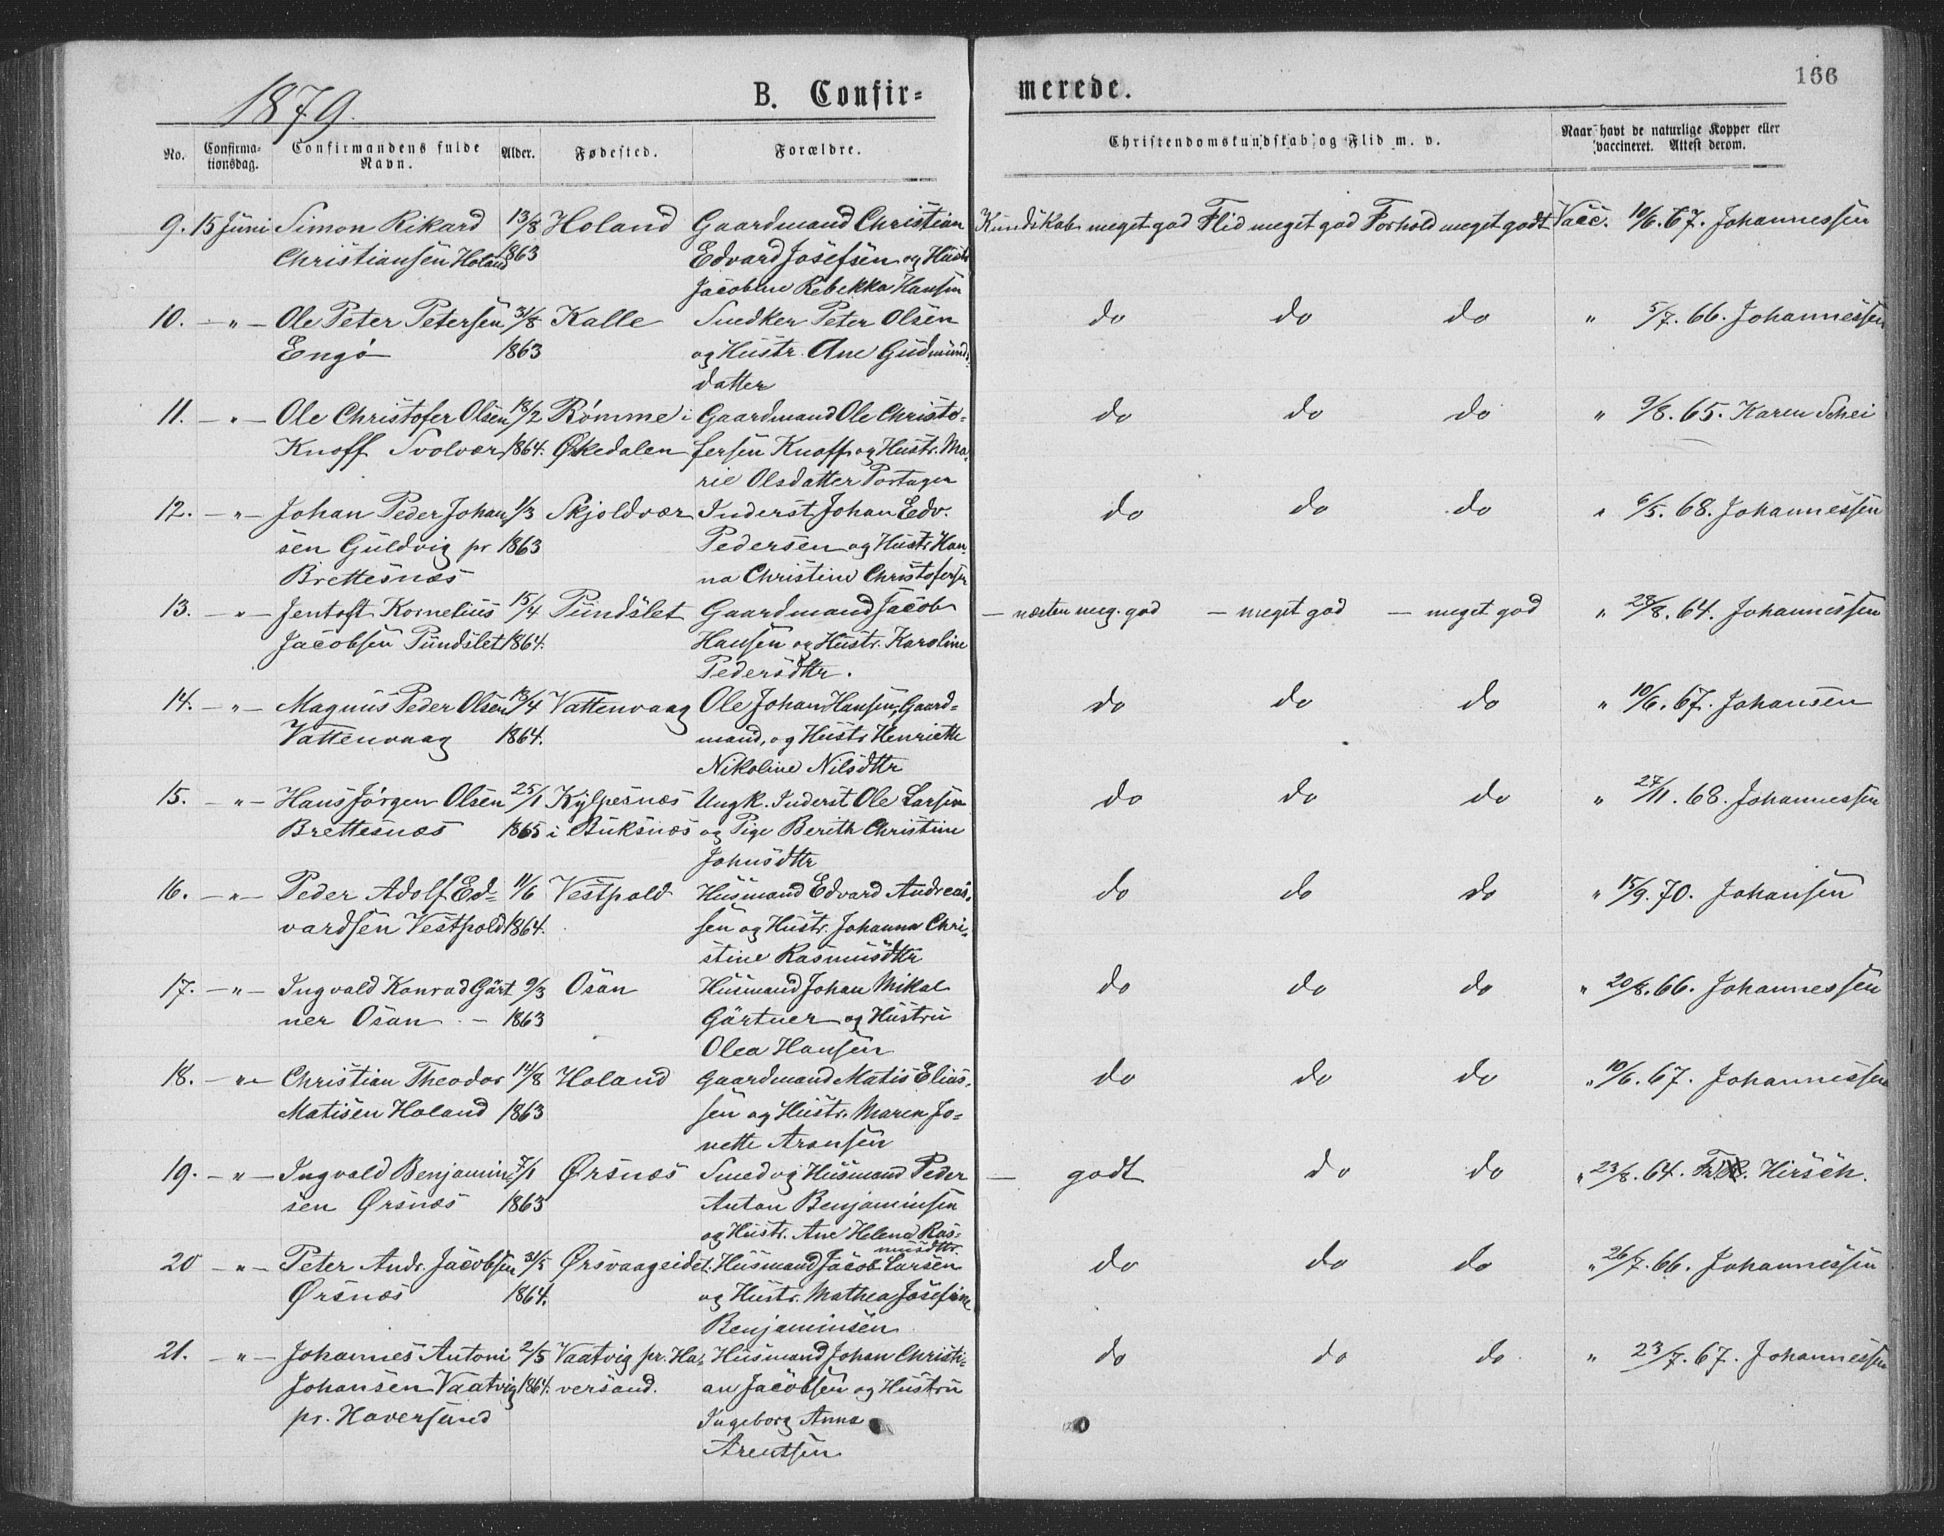 1879.
B. Confir=
merede.
166
No.
Confirma-
tionsdag.
Confirmandens fulde
Navn.
Alder.
Fødested.
Forældre.
Christendomskundskab og Flid m. v.
Naar havt de naturlige Kopper eller
vaccineret. Attest derom.
9. 15 Juni Simon Rikard 13/8 Holand Gaardmand Christian Kundskab meget god Flid meget god Forhold meget godt Vacc. 10/6. 67. Johannessen
Christiansen Holand 1863 Edvard Josefsen og Hustr
Jacobine Rebekka Hansen
10. — " — Ole Peter Petersen 31/8 Kalle Snedker Peter Olsen do do do " 5/7. 66. Johannessen
Engø 1863 og Hustr. Ane Gudmunds
datter
11. — " — Ole Christofer Olsen 18/2 Rømme i Gaardmand Ole Christo= do do do " 9/8. 65. Karen Schei
Knoff Svolvær 1864. Ørkedalen fersen Knoff og Hustr. Ma=
rie Olsdatter
12. — " — Johan Peder Johan 1/3 Skjoldvær Inderst Johan Edv. do do do " 6/5. 68. Johannessen
sen Guldvig pr 1863 Pedersen og Hustr Han
Brettesnæs na Christine Christofersen
13. — " — Jentoft Kornelius 15/4 Pundslet Gaardmand Jacob — næsten meg. god — meget god — meget god " 28/8. 64. Johannessen
Jacobsen Pundslet 1864. Hansen og Hustr. Karoline
Pedersdtr.
14. — " — Magnus Peder Olsen 13/4 Vattenvaag Ole Johan Hansen, Gaard= do do do " 10/6. 67. Johansen
Vattenvaag 1864. mand, og Hustr Henriette
Nikoline Nilsdtr
15. — " — Hans Jørgen Olsen 25/1 Kylpesnæs Ungk. Inderst Ole Larsen do do do " 27/11. 68. Johannessen
Brettesnæs 1865 i Buksnæs og Pige Bereth Christine
Johnsdtr
16. — " — Peder Adolf Ed= 11/6 Vestpold Husmand Edvard Andreas= do do do " 15/9. 70. Johansen
vardsen Vestpold 1864. sen og Hustr. Johanna Chri=
stine Rasmusdtr
17. — " — Ingvald Konrad Gärt 9/3 Osan Husmand Johan Mikal do do do " 20/8. 66. Johannessen
ner Osan — 1863 Gärtner og Hustru
Olea Hansen
18. — " — Christian Theodor 14/8 Holand Gaardmand Matis Elias= do do do " 10/6. 67. Johannessen
Matisen Holand 1863 sen og Hustr. Maren Jo=
nette Aronsen
19. — " — Ingvald Benjamin 7/1 Ørsnæs Smed og Husmand Peder — godt do do " 23/8. 64. Hirsch.
sen Ørsnæs 1863 Anton Benjaminsen
og Hustr. Ane Helena Ras=
musdtr.
20 — " — Peter Andr. Jacobsen 31/5 Ørsvaageidet. Husmand Jacob Larsen do do do " 26/7. 66. Johannessen
Ørsnæs 1864. og Hustr. Mathea Josefine
Benjaminsen
21. — " — Johannes Antoni 2/5 Vaatvig pr. Ha= Husmand Johan Christi= do do do " 23/7. 67. Johannessen
Johansen Vaatvig 1864. versand. an Jacobsen og Hustru
pr. Haversund Ingeborg Anna
Arentsen